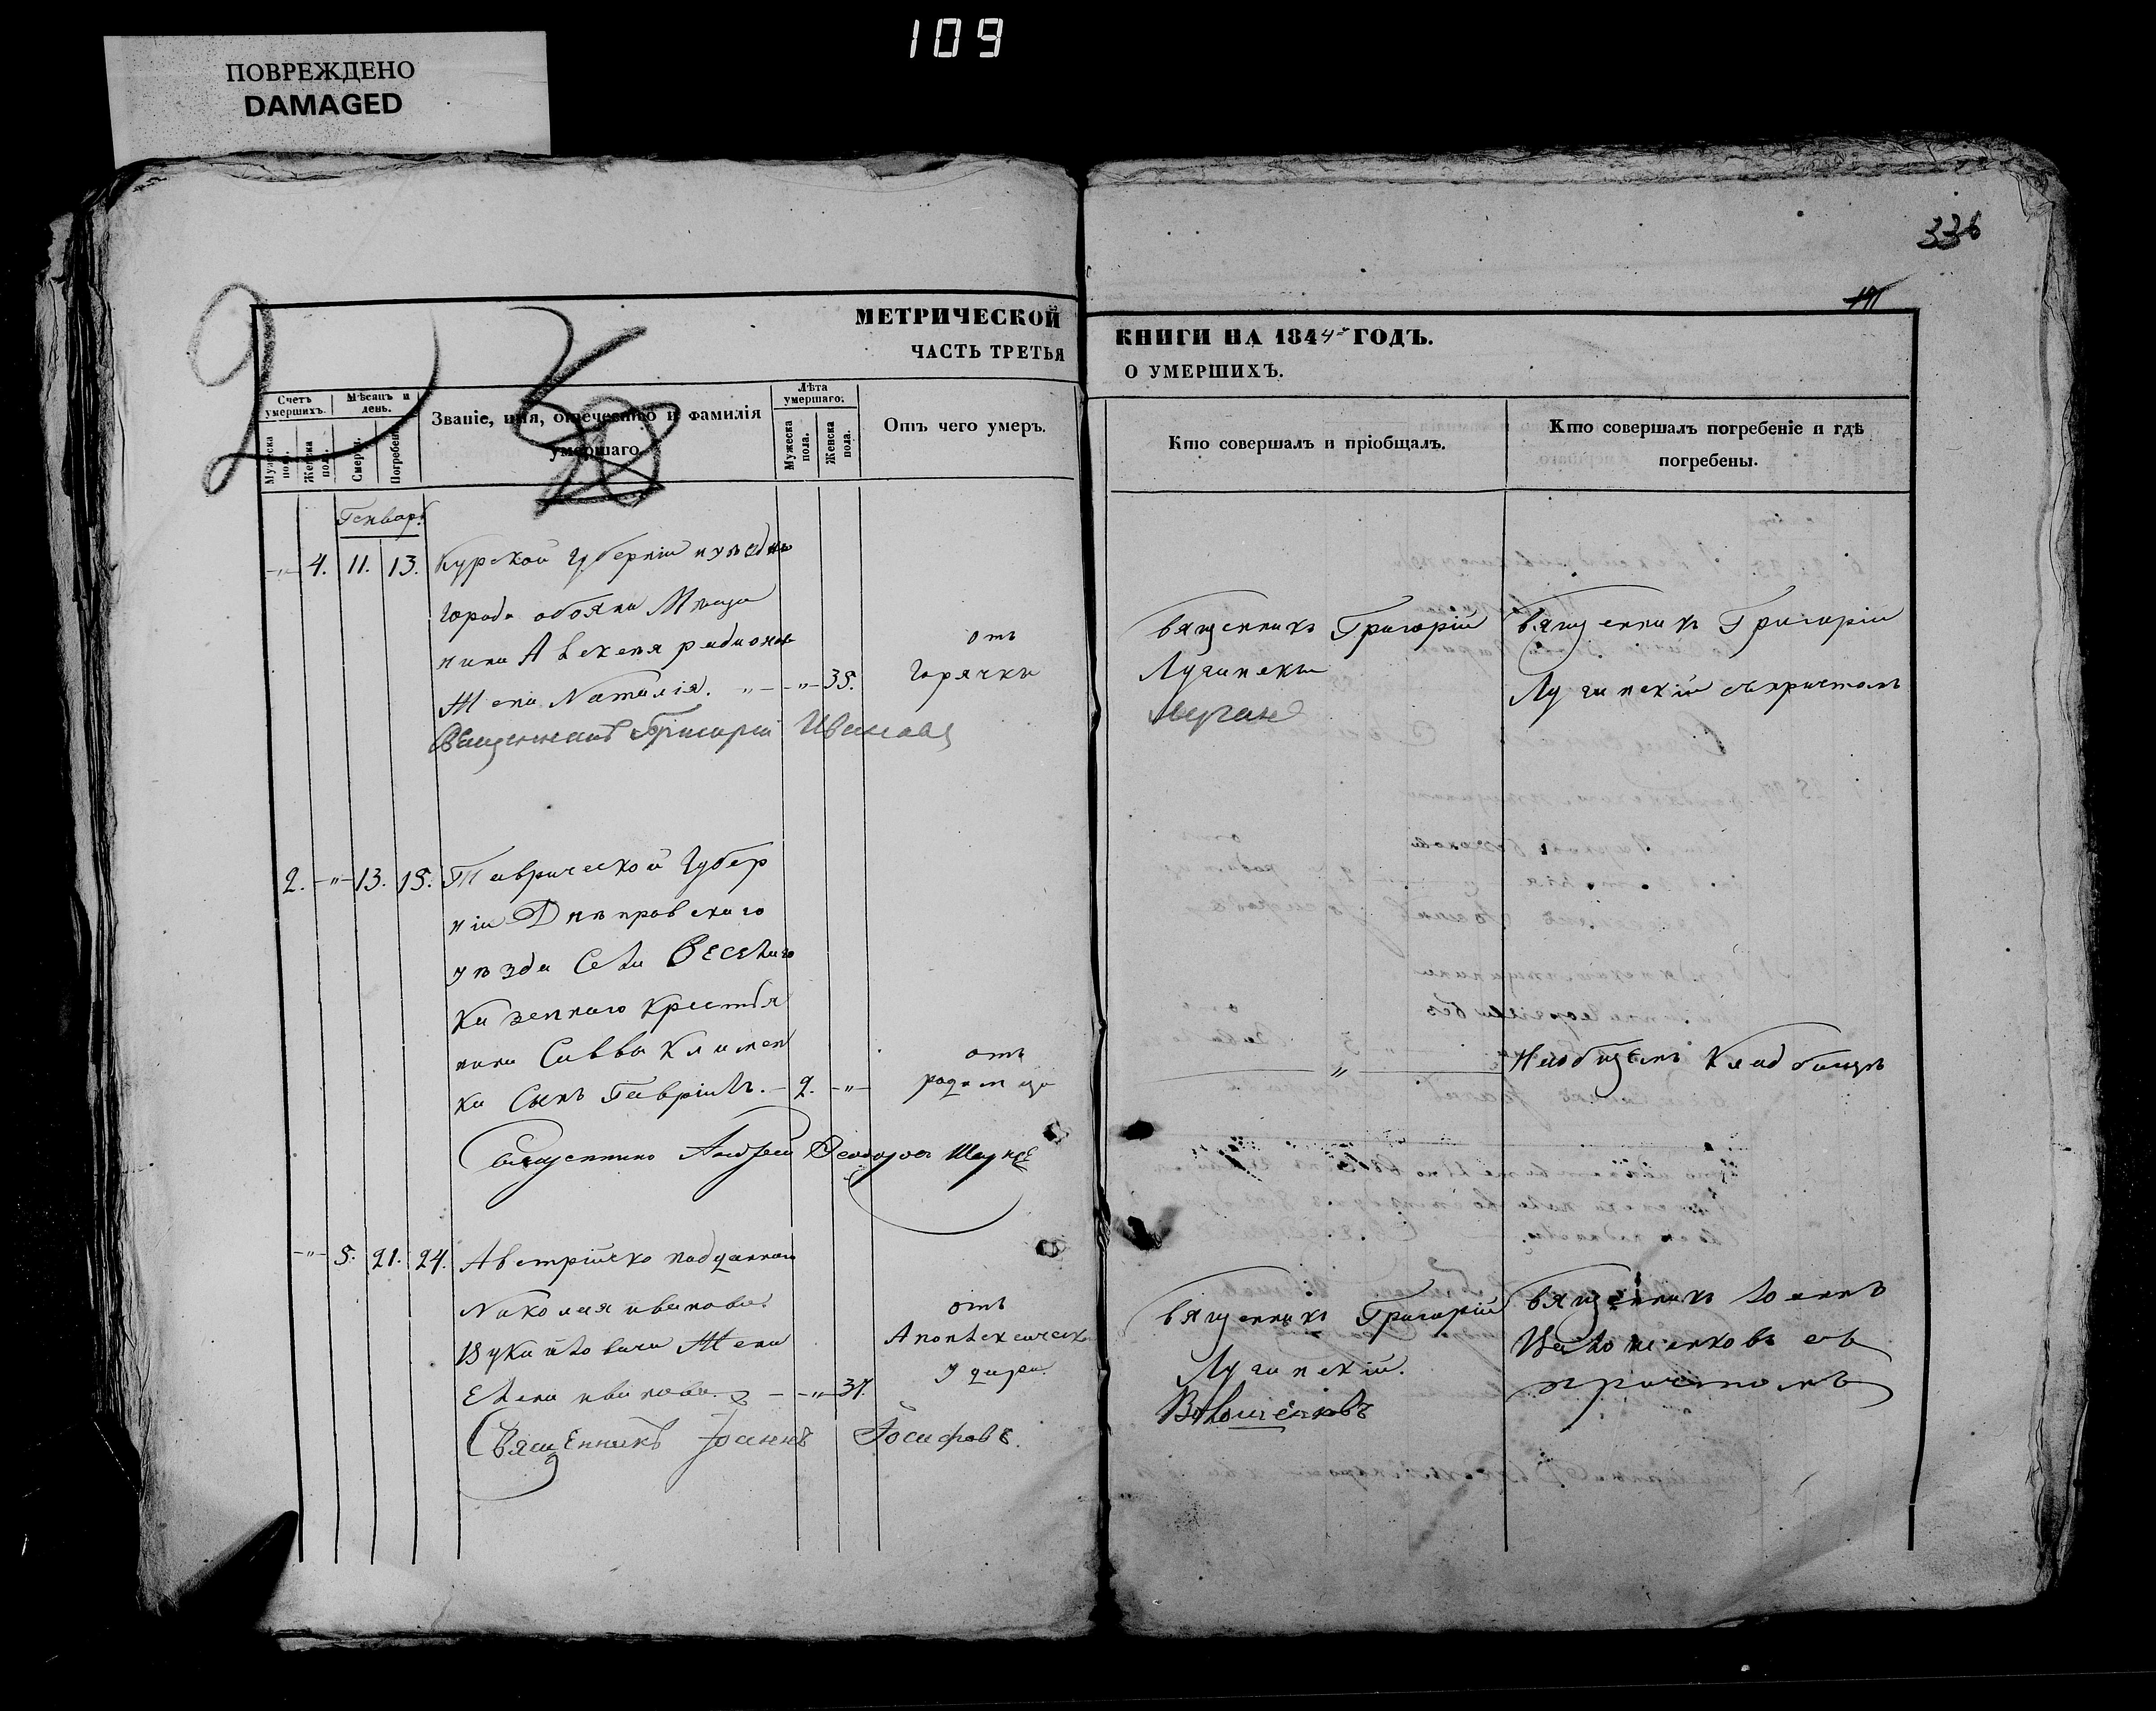 109
ПОВРЕЖДЕНО
DAMAGED
336
МЕТРИЧЕСКОЙ КНИГИ НА 1844 ГОДЪ.
ЧАСТЬ ТРЕТЬЯ О УМЕРШИХЪ.
Счетъ умершихъ.
Мужеска пола.
Женска пола.
Мѣсяцъ и день.
Смерти.
Погребен.
Званіе, имя, отечество и фамилія умершаго.
Лѣта умершаго:
Мужеска пола.
Женска пола.
Отъ чего умеръ.
Кто совершалъ и пріобщалъ.
Кто совершалъ погребеніе и гдѣ погребены.
Генварь
4. 11. 13. Курской Губерніи
города Обояни Мѣща
нина
Жена Наталія. 35.
отъ
Горячки
Священникъ Григорій
Священникъ Григорій
Лучинскій съ причтомъ
Священникъ Григорій Иванова
2. 13. 15. Таврической Губер
ніи Днѣпровскаго
уѣзда Села Веселаго
Казеннаго Крестья
нина Саввы Климен
ка Сынъ Гавріилъ. 2.
отъ
родимца
На общемъ Кладбищѣ
Священникъ Андрей
5. 21. 24. Австрійско подданнаго
Николая Иванова
Жена
Елена Иванова 37.
отъ
Апоплексическ
удара
Священникъ Григорій
Лучинскій.
Волошеновъ
Священникъ Іоаннъ
съ
причтомъ
Священникъ Іоаннъ Іосифовъ.